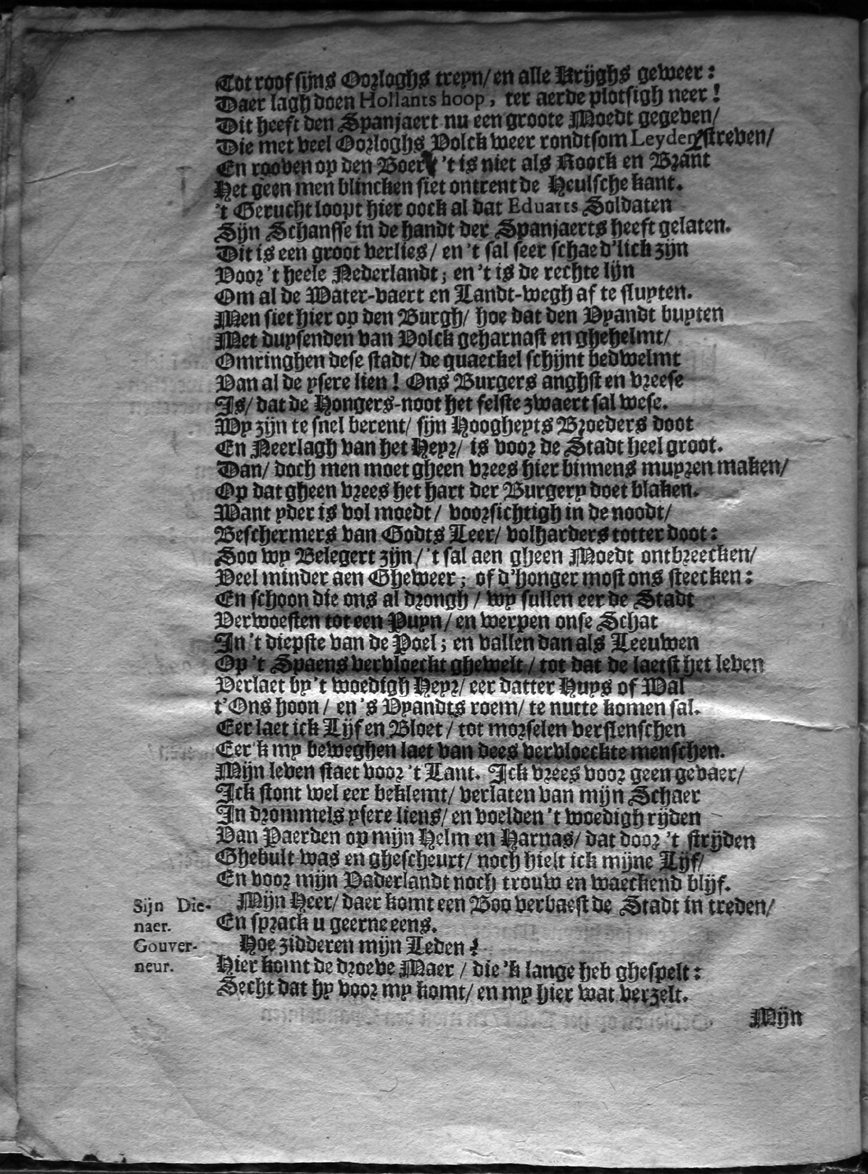 Tot roof sijns Oorloghs treyn/ en alle Krijghs geweer:
Daer lagh doen Hollants hoop, ter aerde plotsigh neer!
Dit heeft den Spanjaert nu een groote Moedt gegeven/
Die met veel Oorloghs Volck weer rondtsom Leyden streven/
En rooven op den Boer/ 't is niet als Roock en Brant
Het geen men blincken siet ontrent de Heulsche kant.
't Gerucht loopt hier oock al dat Eduarts Soldaten
Sijn Schansse in de handt der Spanjaerts heeft gelaten.
Dit is een groot verlies/ en 't sal seer schaed'lick zijn
Voor 't heele Nederlandt; en 't is de rechte lijn
Om al de Water-vaert en Landt-wegh af te sluyten.
Men siet hier op den Burgh/ hoe dat den Vyandt buyten
Met duysenden van Volck geharnast en ghehelmt/
Omringhen dese stadt/ de quaeckel schijnt bedwelmt
Van al de ysere lien! Ons Burgers anghst en vreese
Is/ dat de Hongers-noot het felste zwaert sal wese.
Wy zijn te snel berent/ sijn Hoogheyts Broeders doot
En Neerlagh van het Heyr/ is voor de Stadt heel groot.
Dan/ doch men moet gheen vrees hier binnens muyren maken/
Op dat gheen vrees het hart der Burgery doet blaken.
Want yder is vol moedt/ voorsichtigh in de noodt/
Beschermers van Godts Leer/ volharders totter doot:
Soo wy Belegert zijn/ 't sal aen gheen Moedt ontbreecken/
Veel minder aen Gheweer; of d'honger most ons steecken:
En schoon die ons al drongh/ wy sullen eer de Stadt
Verwoesten tot een Puyn/ en werpen onse Schat
In 't diepste van de Poel; en vallen dan als Leeuwen
Op 't Spaens vervloeckt ghewelt/ tot dat de laetst het leven
Verlaet by 't woedigh Heyr/ eer datter Huys of Wal
t'Ons hoon/ en 's Vyandts roem/ te nutte komen sal.
Eer laet ick Lijf en Bloet/ tot morselen verslenschen
Eer 'k my beweghen laet van dees vervloeckte menschen.
Mijn leven staet voor 't Lant. Ick vrees voor geen gevaer/
Ick stont wel eer beklemt/ verlaten van mijn Schaer
In drommels ysere liens/ en voelden 't woedigh rijden
Van Paerden op mijn Helm en Harnas/ dat door 't strijden
Ghebult was en ghescheurt/ noch hielt ick mijne Lijf/
En voor mijn Vaderlandt noch trouw en waeckend blijf.
Sijn Dienaer. Mijn Heer/ daer komt een Boo verbaest de Stadt in treden/
En sprack u geerne eens.
Gouverneur. Hoe zidderen mijn Leden!
Hier komt de droeve Maer/ die 'k lange heb ghespelt:
Secht dat hy voor my komt/ en my hier wat verzelt.
Mijn